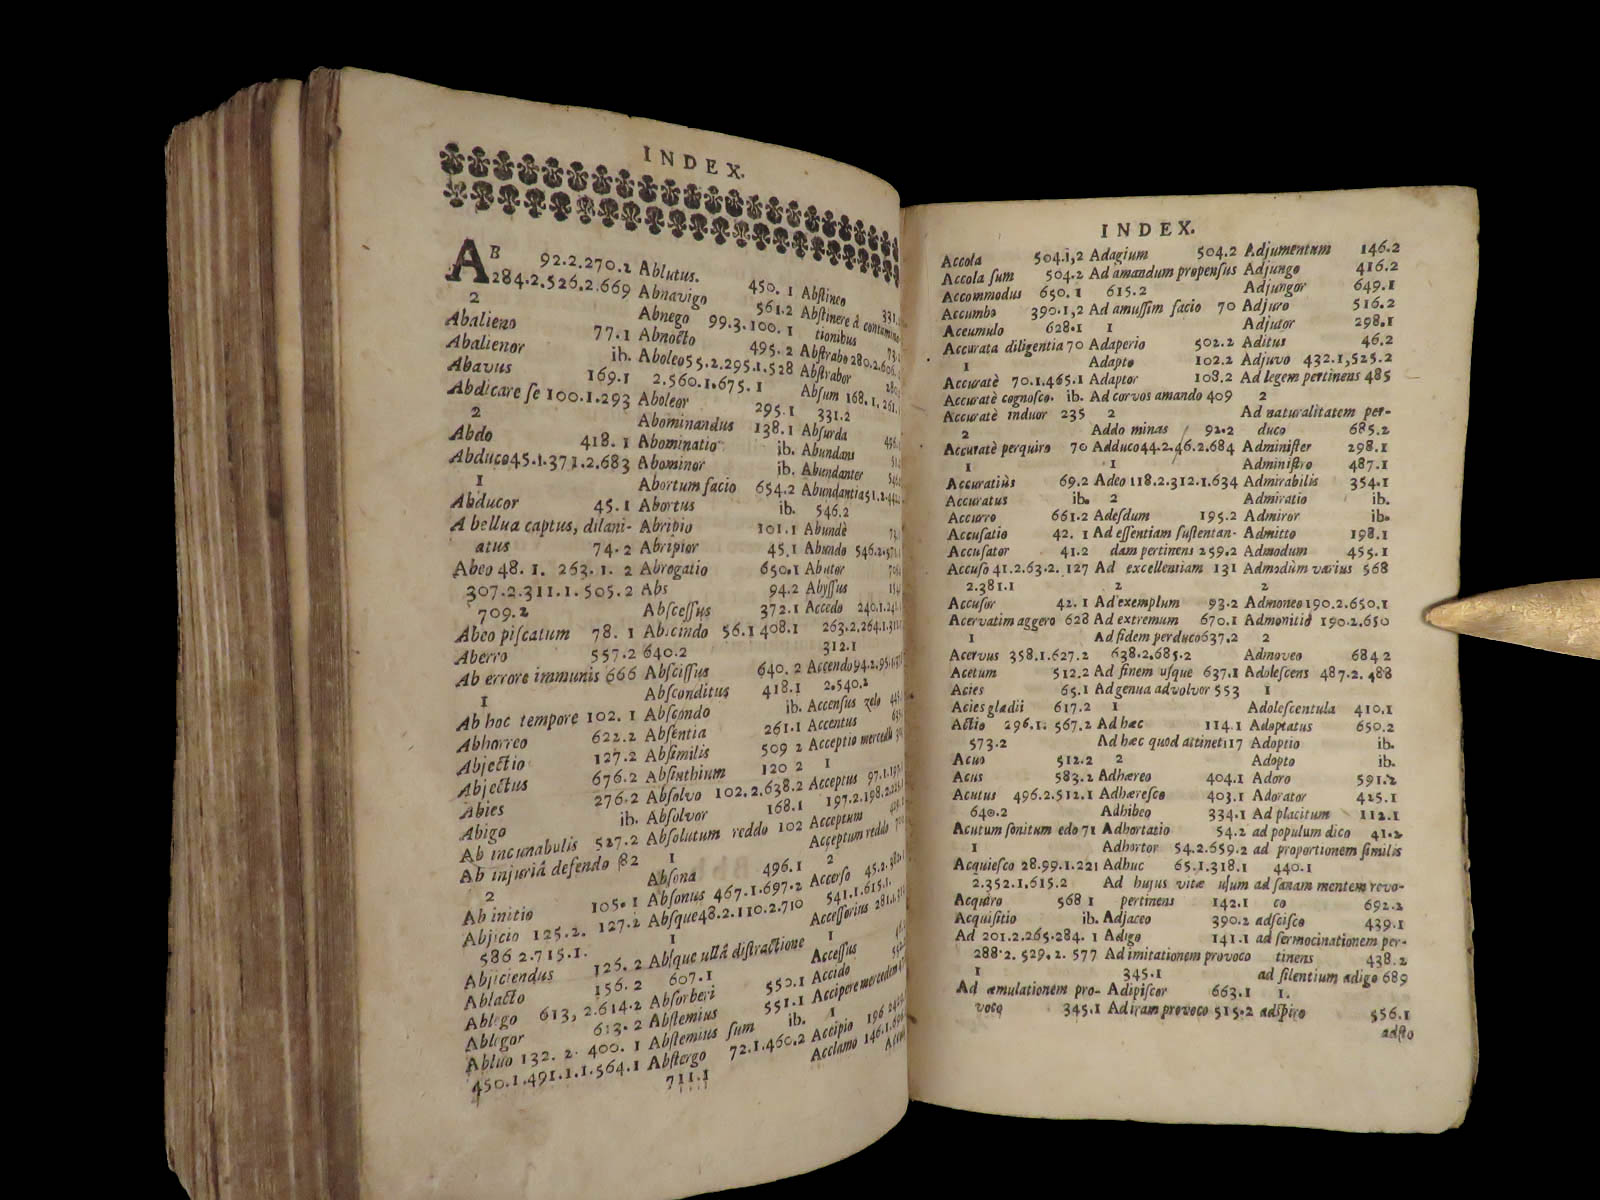 INDEX.
AB 92.2.270.2
284.2.526.2.669
2
Abalieno 77.1
Abalienor ib.
Abavus 169.1
Abdicare ſe 100.1.293
2
Abdo 418. 1
Abduco45.1.371.2.683
1
Abducor 45.1
A bellua captus, dilani-
atus 74.2
Abeo 48. 1. 263. 1. 2
307.2.311.1.505.2
709.2
Abeo piſcatum 78. 1
Aberro 557.2
Ab errore immunis 666
1
Ab hoc tempore 102. 1
Abhorreo 622.2
Abjectio 127.2
Abjectus 676.2
Abies 276.2
Abigo ib.
Ab incunabulis 527.2
Ab injuriâ defendo 82
2
Ab initio 105.1
Abjicio 125.2. 127.2
586 2.715.1.
Abjiciendus 125. 2
Ablacto 156. 2
Ablego 613, 2.614.2
Ablegor 613. 2
Abluo 132. 2. 400. 1
450.1.491.1.1.564.1
Ablutus. 450. 1
Abnavigo 561.2
Abnego 99.3.100. 1
Abnocto 495. 2
Aboleo55.2.295.1.528
2.560.1.675. 1
Aboleor 295.1
Abominandus 138.1
Abominatio ib.
Abominor ib.
Abortum facio 654.2
Abortus ib.
Abripio 101.1
Abripior 45.1
Abrogatio 650.1
Abs 94.2
Abſceſſus 372.1
Abſcindo 56.1 408.1
640.2
Abſciſſus 640. 2
Abſconditus 418.1
Abſcondo ib.
Abſentia 261.1
Abſimilis 509 2
Abſinthium 120 2
Abſolvo 102.2.638.2
Abſolvor 168.1
Abſolutum reddo 102
1
Abſona 496.1
Abſonus 467.1.697.2
Abſque48.2.110.2.710
1
Abſque ullâ diſtractione
607.1
Abſorberi 550.1
Abſtemius 551.1
Abſtemius ſum ib.
Abſtergo 72.1.460.2
711.1
Abſtineo
Abſtinere à
tionibus
Abſtraho 280.2.606.
Abſtrahor
Abſum 168. 1. 261.
331.2
Abſurda
Abundans
Abundanter
Abundantia51.2.
546.2
Abundè
Abundo 546.2.
Abutor
Abyſſus
Accedo 240.1.
263.2.264.1.
312.1
Accendo94.2.95.
2.540.2
Accenſus zelo
Accentus
Acceptio
1
Acceptus 97.1.
197.2.198.2.
Acceptum
Acceptum reddo
2
Accerſo 45.2.
541.1.615.1.
Acceſſorius 281.1.
1
Acceſſus
Accido
Accipere mercedem
1
Accipio 196
Acclamo 146.1.
INDEX.
Accola 504.1,2
Accola ſum 504.2
Accommodus 650. 1
Accumbo 390.1,2
Accumulo 628.1
Accurata diligentia 70
1
Accuratè 70.1.465.1
Accuratè cognoſco. ib.
Accuratè induor 235
2
Accuratè perquiro 70
1
Accuratiùs 69.2
Accuratus ib.
Accurro 661.2
Accuſatio 42. 1
Accuſator 41.2
Accuſo 41.2.63.2. 127
2.381.1
Accuſor 42. 1
Acervatim aggero 628
1
Acervus 358.1.627.2
Acetum 512.2
Acies 65.1
Acies gladii 617.2
Actio 296.1. 567.2
573.2
Acuo 512.2
Acus 583.2
Acutus 496.2.512.1
640.2
Acutum ſonitum edo 71
1
Acquieſco 28.99.1.221
2.352.1.615.2
Acquiro 568 1
Acquiſitio ib.
Ad 201.2.265.284. 1
288.2. 529.2. 577
1
Ad æmulationem pro-
voco 345.1
Adagium 504.2
Ad amandum propenſus
615.2
Ad amuſſim facio 70
1
Adaperio 502.2
Adapto 102.2
Adaptor 108.2
Ad corvos amando 409
2
Addo minas 92.2
Adduco44.2.46.2.684
1
Adeo 118.2.312.1.634
2
Adeſdum 195.2
Ad eſſentiam ſuſtentan-
dam pertinens 259.2
Ad excellentiam 131
2
Ad exemplum 93.2
Ad extremum 670.1
Ad fidem perduco637.2
638.2.685.2
Ad finem uſque 637.1
Ad genua advolvor 553
1
Ad hæc 114.1
Ad hæc quod attinet117
2
Adhæreo 404.1
Adhæreſco 403.1
Adhibeo 334.1
Adhortatio 54.2
Adhortor 54.2.659.2
Adhuc 65.1.318.1
Ad hujus vitæ uſum
pertinens 142.1
Adjaceo 390.2
Adigo 141.1
Ad imitationem provoco
345.1
Adipiſcor 663.1
Ad iram provoco 515.2
Adjumentum 146.2
Adjungo 416.2
Adjungor 649.1
Adjuro 516.2
Adjutor 298.1
Aditus 46.2
Adjuvo 432.1,525.2
Ad legem pertinens 485
2
Ad naturalitatem per-
duco 685.2
Adminiſter 298.1
Adminiſtro 487.1
Admirabilis 354.1
Admiratio ib.
Admiror ib.
Admitto 198.1
Admodum 455.1
Admodùm varius 568
2
Admoneo190.2.650.1
Admonitio 190.2.650
2
Admoveo 684 2
Adoleſcens 487.2. 488
1
Adoleſcentula 410.1
Adoptatus 650.2
Adoptio ib.
Adopto ib.
Adoro 591.2
Adorator 425.1
Ad placitum 112.1
ad populum dico 41.2
ad proportionem ſimilis
440.1
ad ſanam mentem revo-
co 692.2
adſciſco 439.1
ad ſermocinationem per-
tinens 438.2
ad ſilentium adigo 689
1.
adſpiro 556.1
adſto